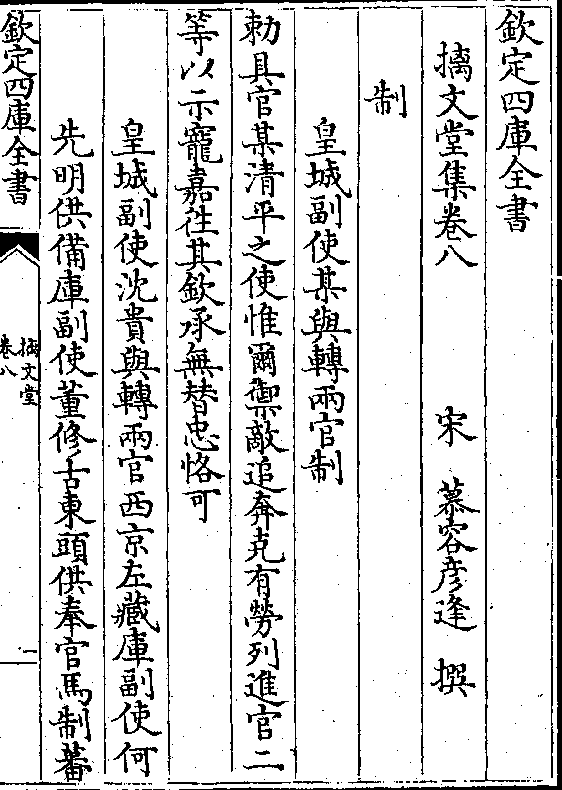 欽定四庫全書
摛文堂集卷八
宋 慕容彥逢 撰
制
皇城副使某與轉兩官制
勅具官某清平之使惟爾禦敵追奔克有勞列進官二
等以示寵嘉徃其欽承無替忠恪可
皇城副使沈貴與轉兩官西京左藏庫副使何
先明供備庫副使董修古東頭供奉官馬制蕃
欽定四庫全書
摛文堂
卷八
一